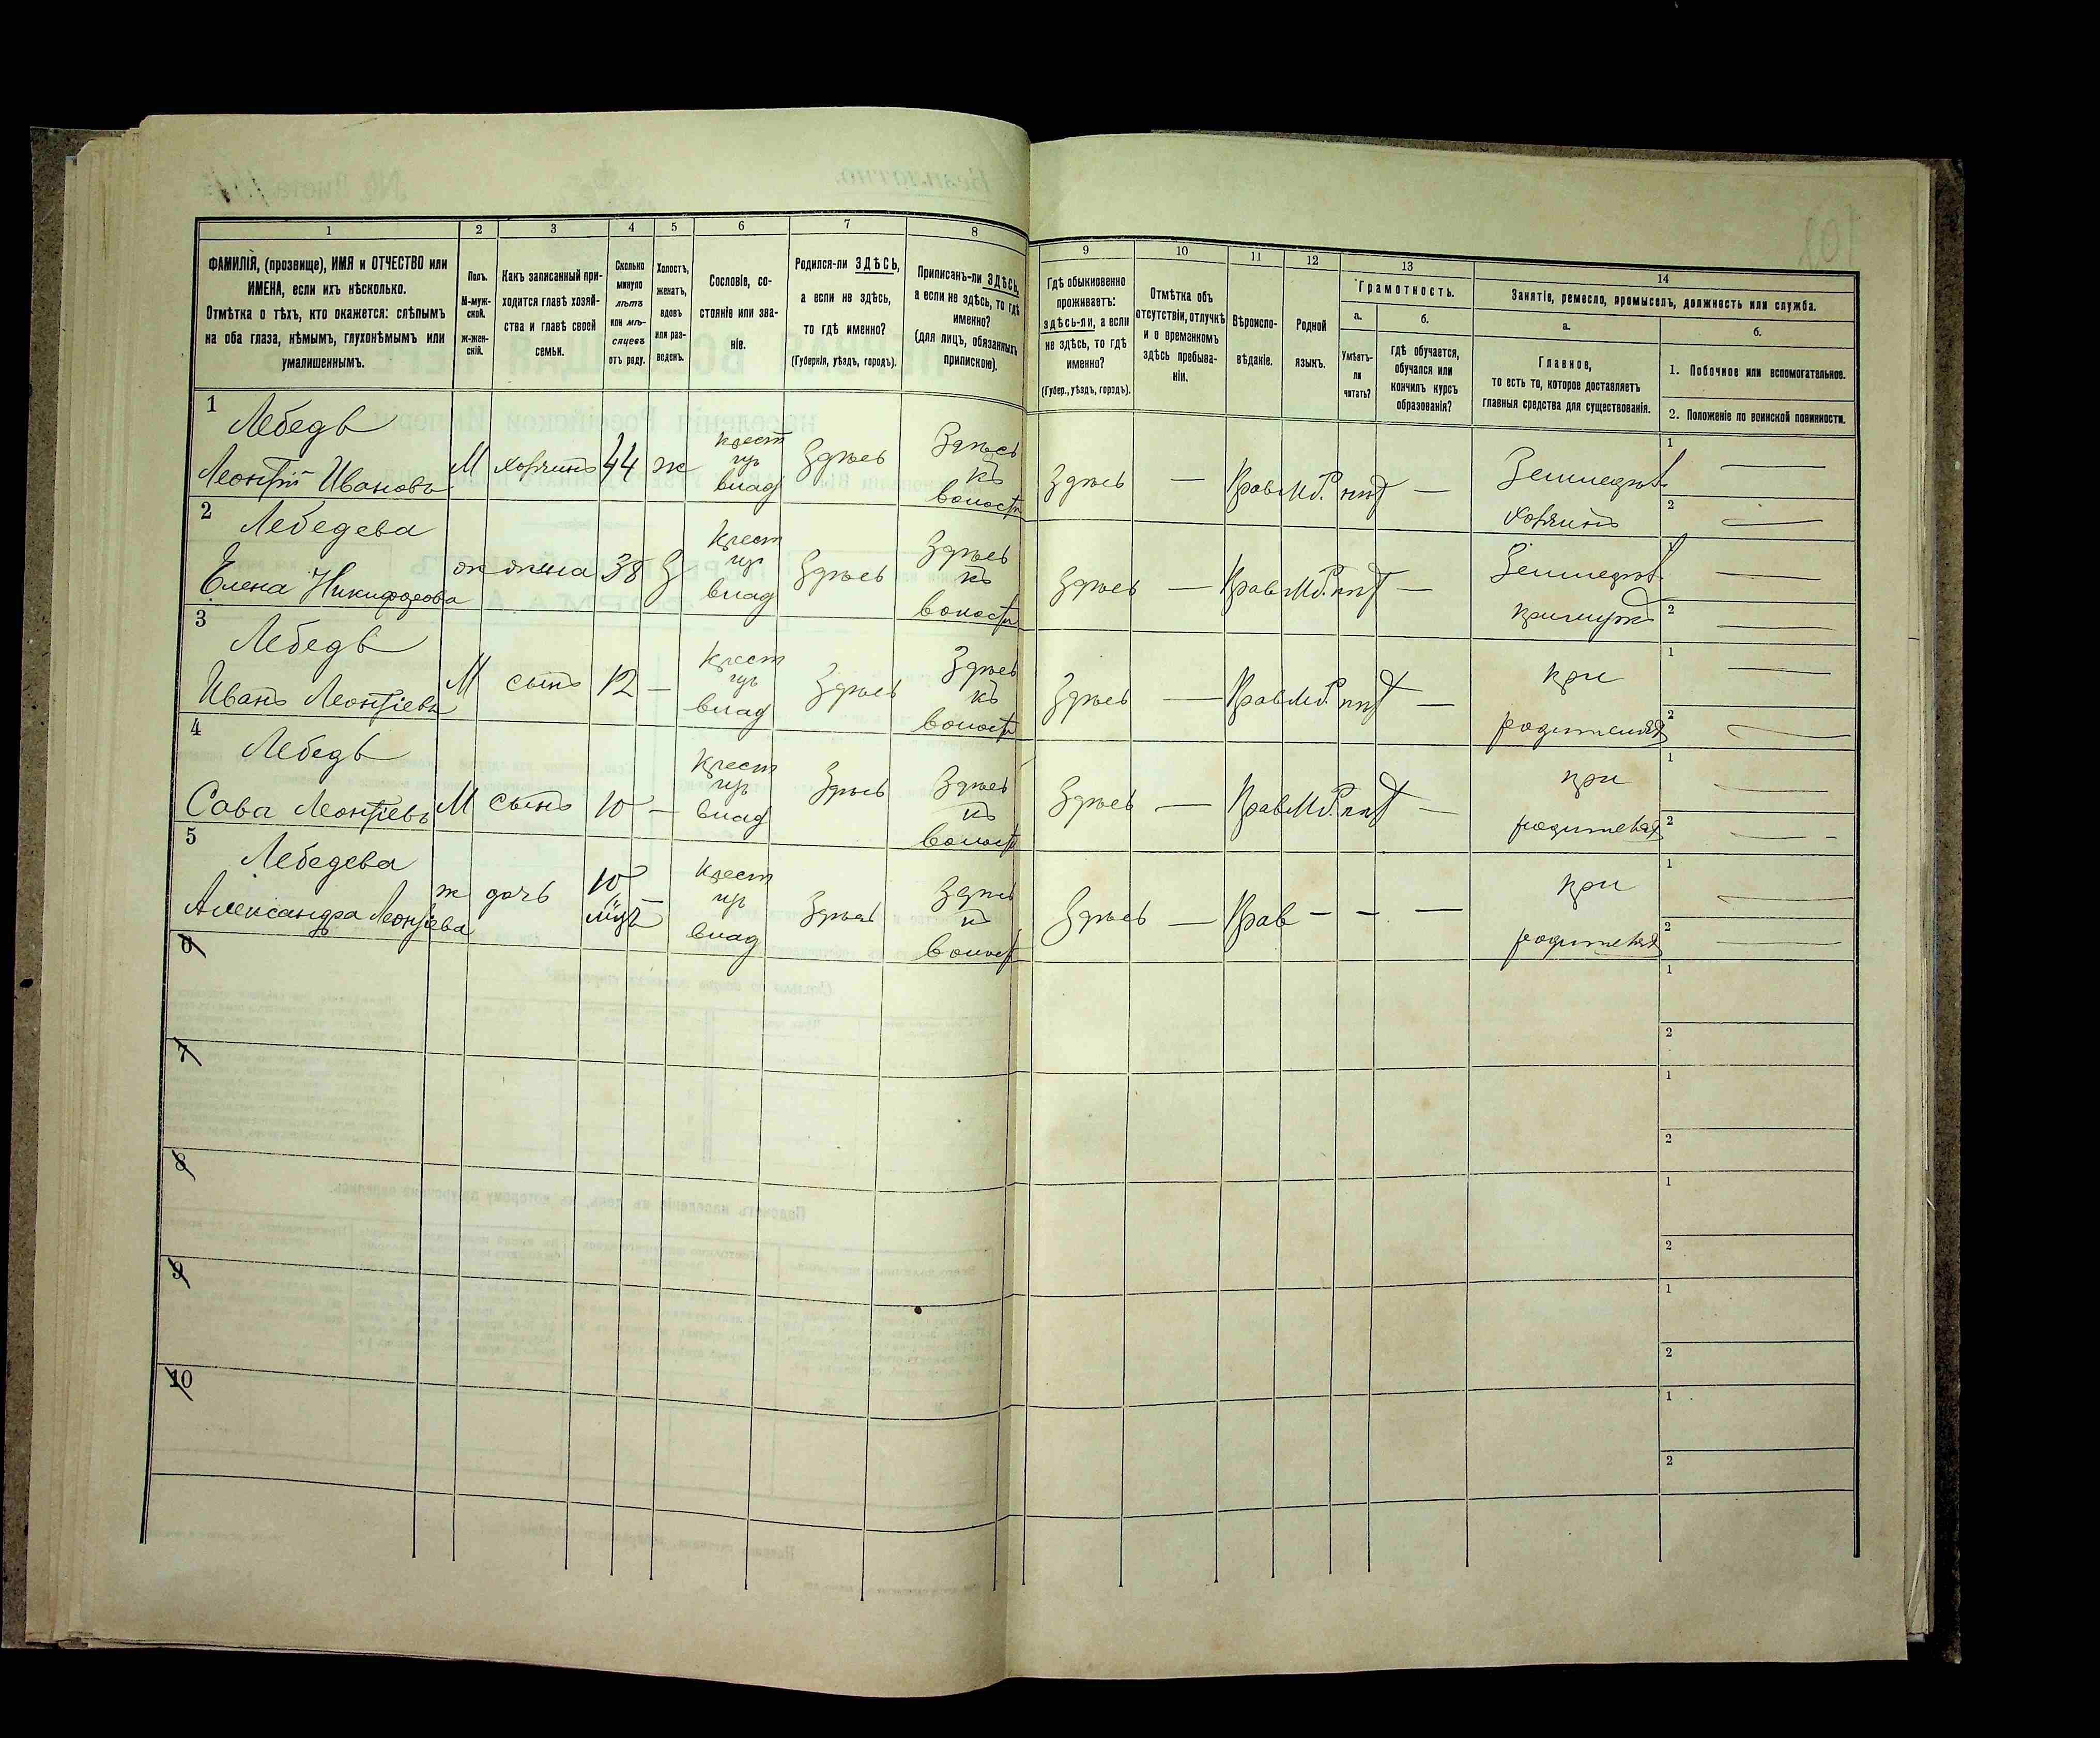 1 2 3 4 5 6 7 8 9 10 11 12 13 14
ФАМИЛІЯ, (прозвище), ИМЯ и ОТЧЕСТВО или
ИМЕНА, если ихъ нѣсколько.
Отмѣтка о тѣхъ, кто окажется: слѣпымъ
на оба глаза, нѣмымъ, глухонѣмымъ или
умалишеннымъ.
Полъ.
М-муж-
ской.
ж-жен-
скій.
Какъ записанный при-
ходится главѣ хозяй-
ства и главѣ своей
семьи.
Сколько
минуло
лѣтъ
или мѣ-
сяцевъ
отъ роду.
Холостъ,
женатъ,
вдовъ
или раз-
веденъ.
Сословіе, со-
стояніе или зва-
ніе.
Родился-ли ЗДѢСЬ,
а если не здѣсь,
то гдѣ именно?
(Губернія, уѣздъ, городъ).
Приписанъ-ли ЗДѢСЬ,
а если не здѣсь, то гдѣ
именно?
(для лицъ, обязанныхъ
припискою).
Гдѣ обыкновенно
проживаетъ:
здѣсь-ли, а если
не здѣсь, то гдѣ
именно?
(Губер., уѣздъ, городъ).
Отмѣтка объ
отсутствіи, отлучкѣ
и о временномъ
здѣсь пребыва-
ніи.
Вѣроиспо-
вѣданіе.
Родной
языкъ.
Грамотность.
а.
Умѣетъ-
ли
читать?
б.
гдѣ обучается,
обучался или
кончилъ курсъ
образованія?
Занятіе, ремесло, промыселъ, должность или служба.
а.
Главное,
то есть то, которое доставляетъ
главныя средства для существованія.
б.
1. Побочное или вспомогательное.
2. Положеніе по воинской повинности.
1 Лебедь
Леонтій Ивановъ М хозяинъ 44 ж
крест
изъ
влад
Здѣсь
Здѣсь
къ
волости
Здѣсь — Прав Мр. нѣт —
Земледѣл.
хозяинъ
1 —
2 —
2 Лебедева
Елена Никифорова ж жена 38 З
крест
изъ
влад
Здѣсь
Здѣсь
къ
волости
Здѣсь — Прав Мр. нѣт —
Земледѣл.
1 —
2 —
3 Лебедь
Иванъ Леонтіевъ М сынъ 12 —
крест
изъ
влад
Здѣсь
Здѣсь
къ
волости
Здѣсь — Прав Мр. нѣт —
при
родителяхъ
1 —
2 —
4 Лебедь
Сава Леонтіевъ М сынъ 10 —
крест
изъ
влад
Здѣсь
Здѣсь
къ
волости
Здѣсь — Прав Мр. нѣт —
при
родителях
1 —
2 —
5 Лебедева
Александра Леонтіева ж дочь 10 —
крест
изъ
влад
Здѣсь
Здѣсь
къ
волости
Здѣсь — Прав — — —
при
родителях
1 —
2 —
6
1
2
7
1
2
8
1
2
9
1
2
10
1
2